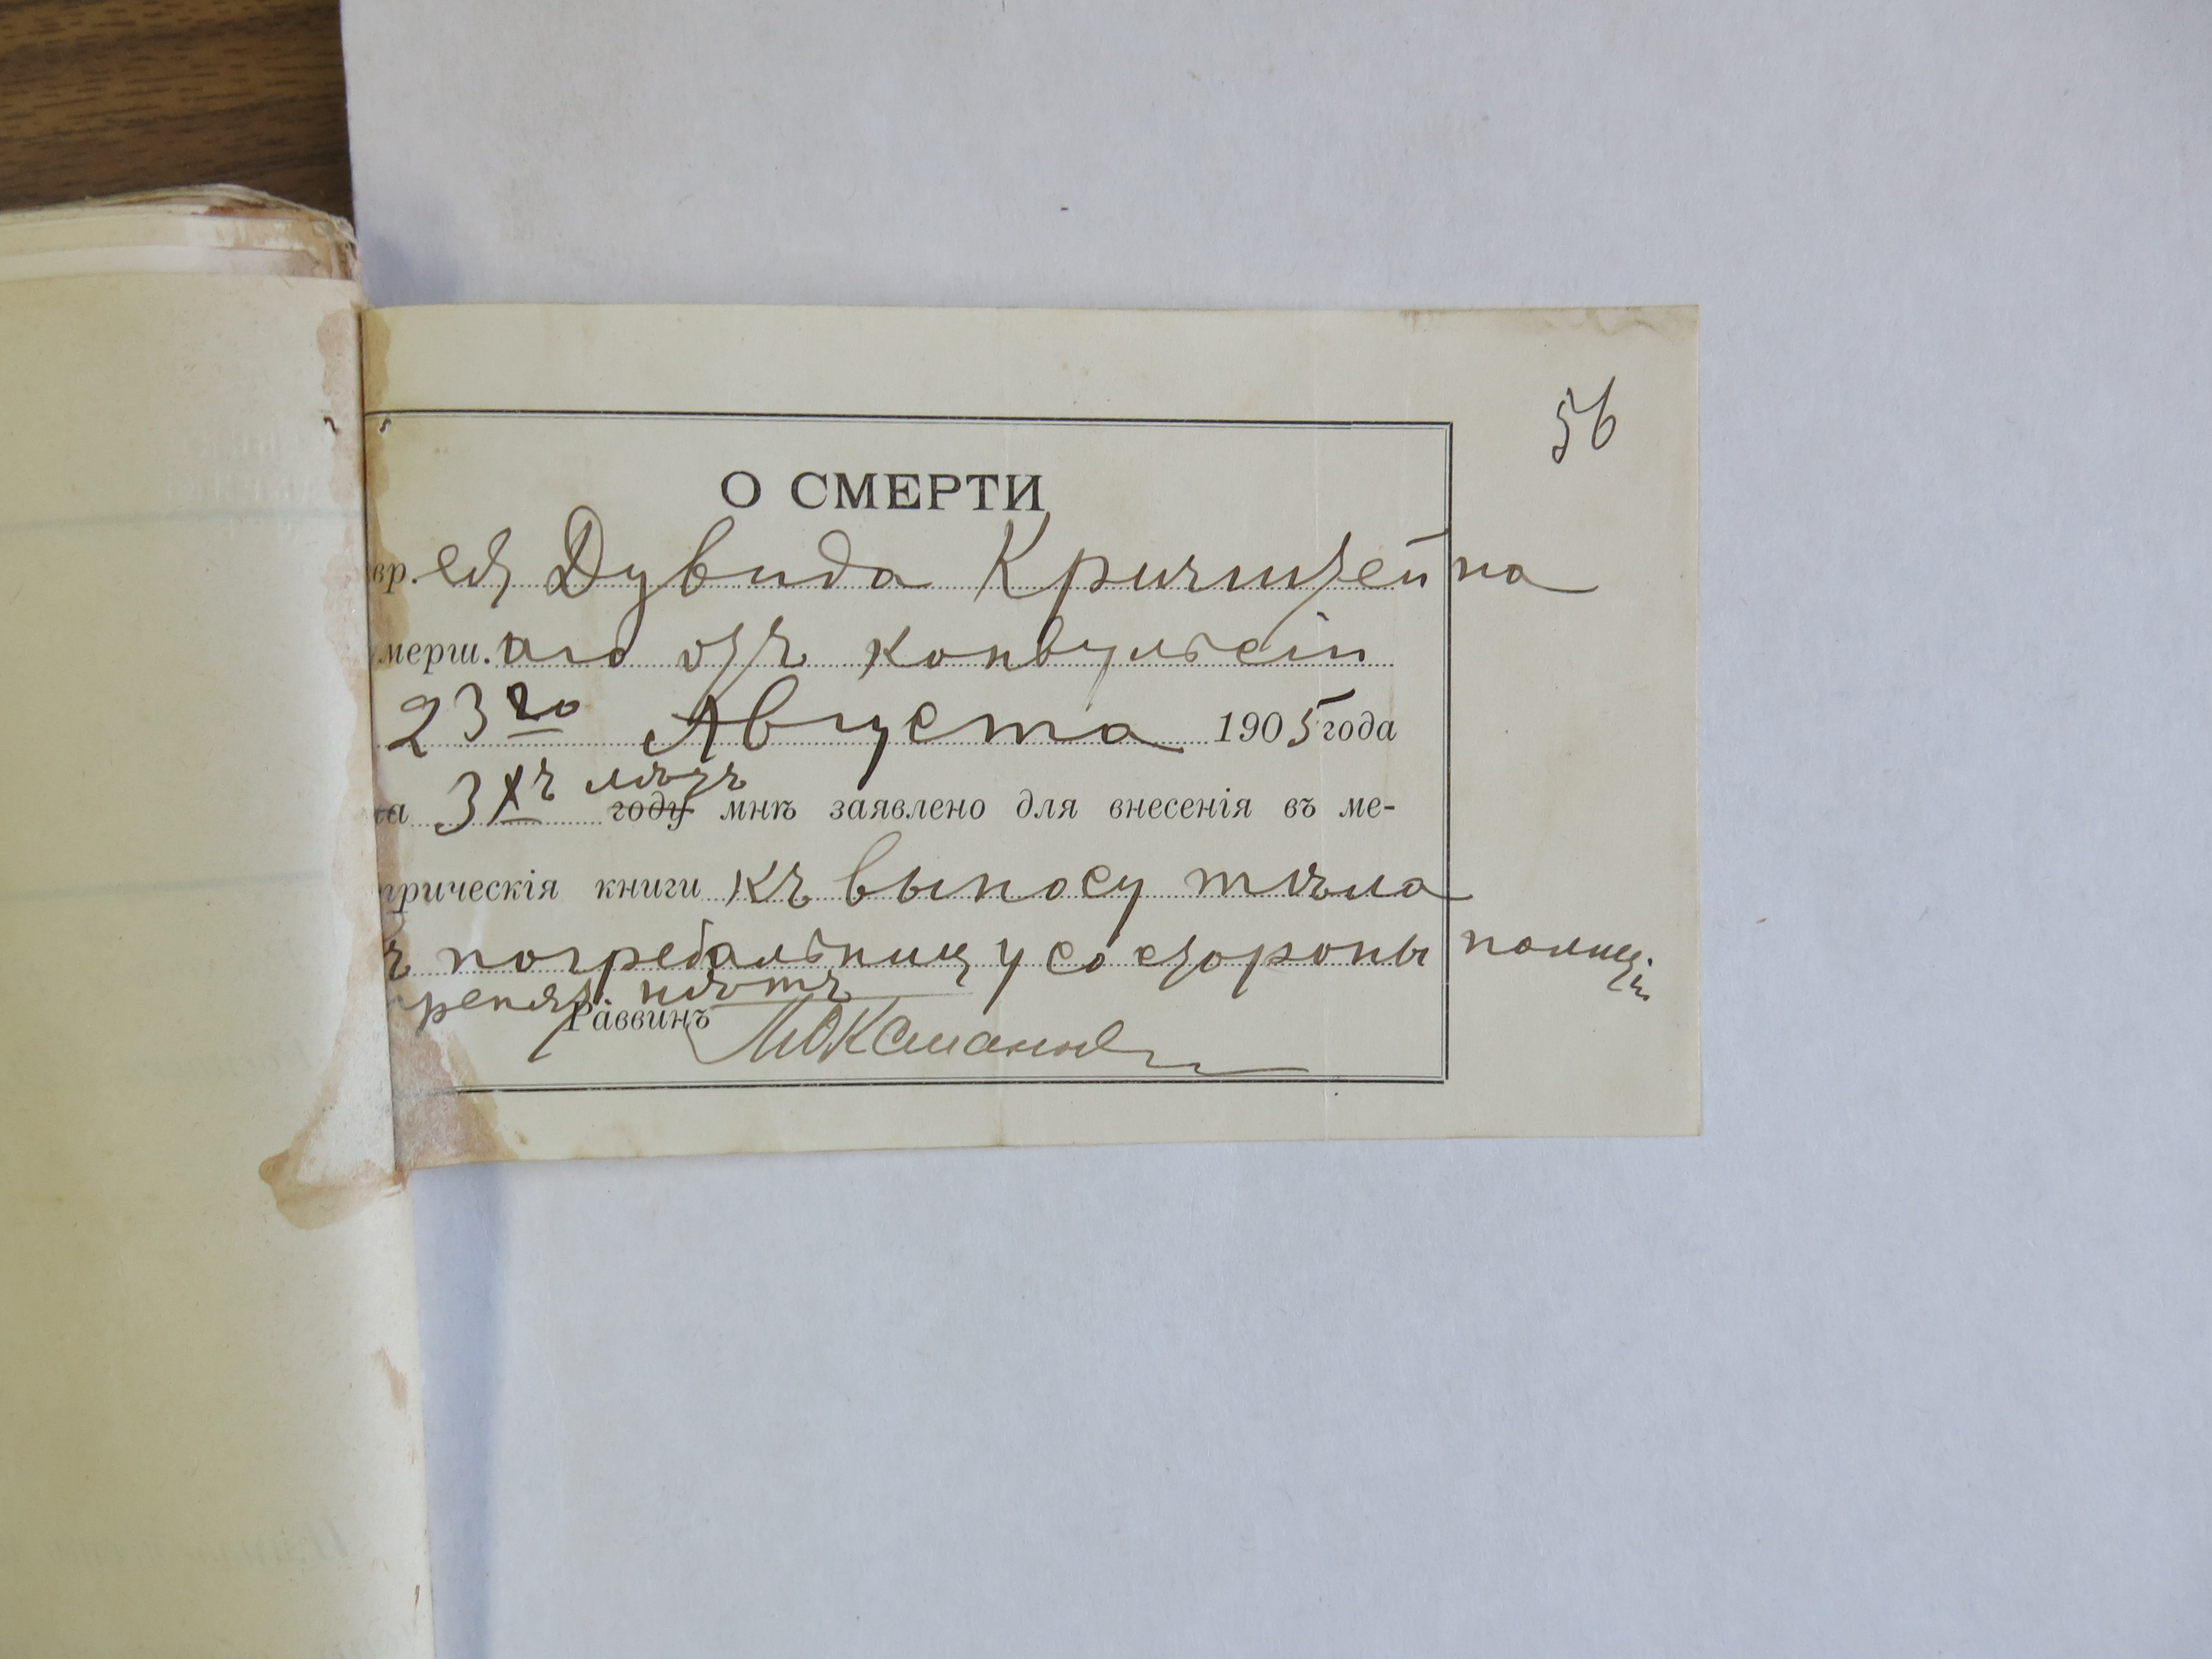 56
О СМЕРТИ
вр. ея Дувида Кричштейна
мерш. аго отъ конвульсіи
23го Августа 1905 года
на 3хъ лѣтъ году мнѣ заявлено для внесенія въ ме-
трическія книги къ выносу тѣла
ъ погребальницу со стороны полиціи
препят. нѣтъ
Раввинъ